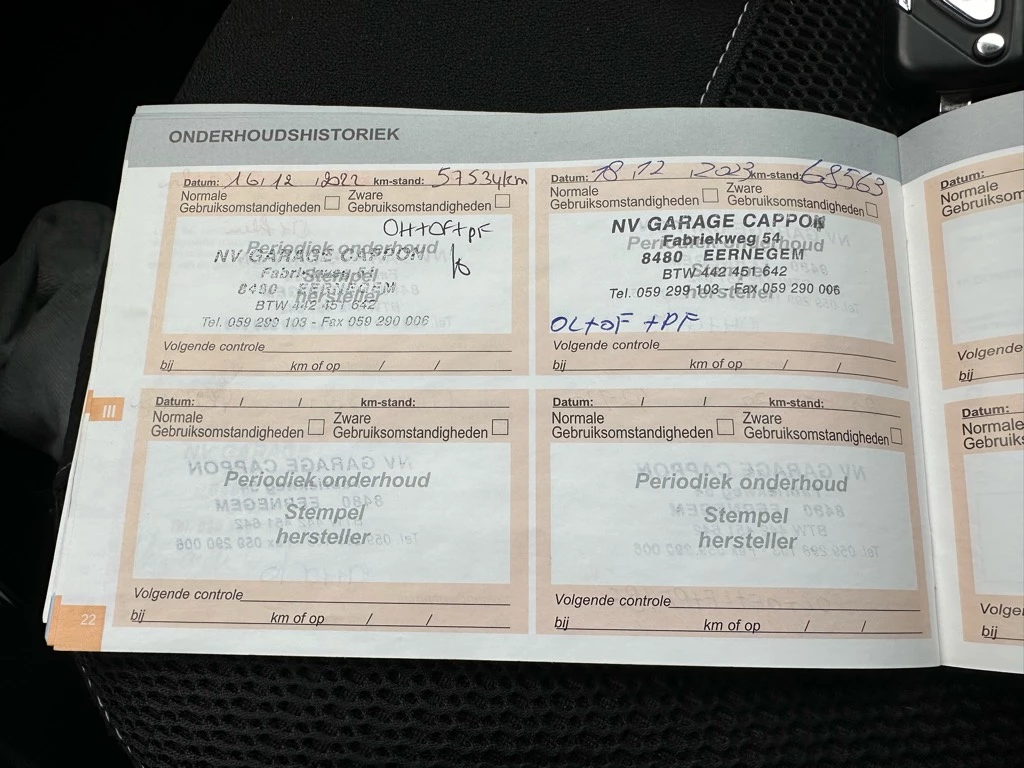 ONDERHOUDSHISTORIEK
Datum: 16/12/2022 km-stand: 57534km
Normale Gebruiksomstandigheden
Zware Gebruiksomstandigheden
OH+OF+PF
Periodiek onderhoud
Stempel
hersteller
NV GARAGE CAPPON
Fabriekweg 54
8480 EERNEGEM
BTW 442 451 642
Tel. 059 299 103 - Fax 059 290 006
Volgende controle
bij km of op / /
Datum: 18/12 2023 km-stand: 68563
Normale Gebruiksomstandigheden
Zware Gebruiksomstandigheden
Periodiek onderhoud
Stempel
hersteller
NV GARAGE CAPPON
Fabriekweg 54
8480 EERNEGEM
BTW 442 451 642
Tel. 059 299 103 - Fax 059 290 006
OL+OF +PF
Volgende controle
bij km of op / /
III
Datum: / / km-stand:
Normale Gebruiksomstandigheden
Zware Gebruiksomstandigheden
Periodiek onderhoud
Stempel
hersteller
Volgende controle
bij km of op / /
Datum: / / km-stand:
Normale Gebruiksomstandigheden
Zware Gebruiksomstandigheden
Periodiek onderhoud
Stempel
hersteller
Volgende controle
bij km of op / /
22
Datum:
Normale
Volgende
bij
Datum:
Normale
bij